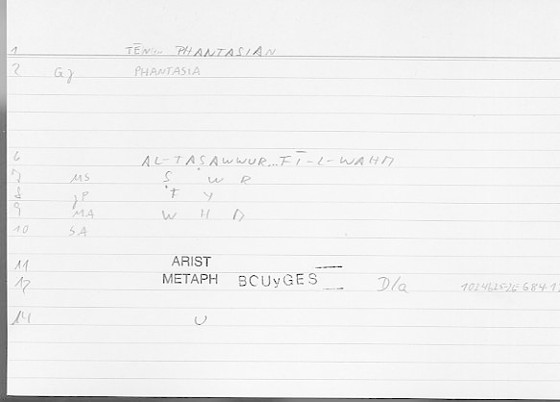 1 TĒN... PHANTASIAN
2 Gj PHANTASIA
6 AL-TAṢAWWUR...FĪ-L-WAHM
7 MS Ṣ W R
8 jP F Y
9 MA W H M
10 SA
11 ARIST
12 METAPH BCUyGES D/a
14 U